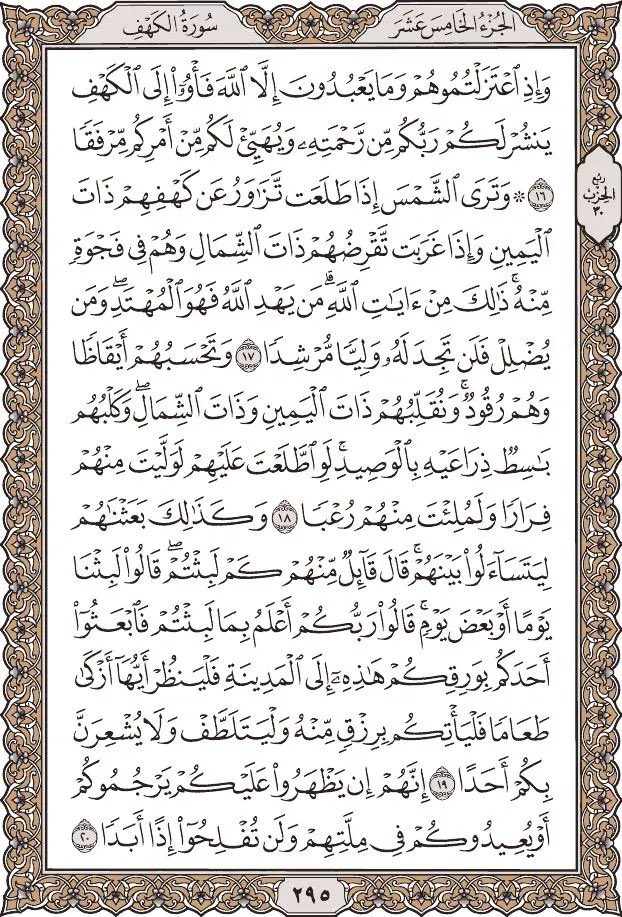 الجُزْءُ الخَامِسَ عَشَرَ
سُورَةُ الكَهْفِ
وَإِذِ ٱعْتَزَلْتُمُوهُمْ وَمَا يَعْبُدُونَ إِلَّا ٱللَّهَ فَأْوُۥٓا۟ إِلَى ٱلْكَهْفِ
يَنشُرْ لَكُمْ رَبُّكُم مِّن رَّحْمَتِهِۦ وَيُهَيِّئْ لَكُم مِّنْ أَمْرِكُم مِّرْفَقًا
١٦ ۞ وَتَرَى ٱلشَّمْسَ إِذَا طَلَعَت تَّزَٰوَرُ عَن كَهْفِهِمْ ذَاتَ
ٱلْيَمِينِ وَإِذَا غَرَبَت تَّقْرِضُهُمْ ذَاتَ ٱلشِّمَالِ وَهُمْ فِى فَجْوَةٍ
مِّنْهُ ۚ ذَٰلِكَ مِنْ ءَايَٰتِ ٱللَّهِ ۗ مَن يَهْدِ ٱللَّهُ فَهُوَ ٱلْمُهْتَدِ ۖ وَمَن
يُضْلِلْ فَلَن تَجِدَ لَهُۥ وَلِيًّا مُّرْشِدًا ١٧ وَتَحْسَبُهُمْ أَيْقَاظًا
وَهُمْ رُقُودٌ ۚ وَنُقَلِّبُهُمْ ذَاتَ ٱلْيَمِينِ وَذَاتَ ٱلشِّمَالِ ۖ وَكَلْبُهُم
بَٰسِطٌ ذِرَاعَيْهِ بِٱلْوَصِيدِ ۚ لَوِ ٱطَّلَعْتَ عَلَيْهِمْ لَوَلَّيْتَ مِنْهُمْ
فِرَارًا وَلَمُلِئْتَ مِنْهُمْ رُعْبًا ١٨ وَكَذَٰلِكَ بَعَثْنَٰهُمْ
لِيَتَسَآءَلُوا۟ بَيْنَهُمْ ۚ قَالَ قَآئِلٌ مِّنْهُمْ كَمْ لَبِثْتُمْ ۖ قَالُوا۟ لَبِثْنَا
يَوْمًا أَوْ بَعْضَ يَوْمٍ ۚ قَالُوا۟ رَبُّكُمْ أَعْلَمُ بِمَا لَبِثْتُمْ فَٱبْعَثُوٓا۟
أَحَدَكُم بِوَرِقِكُمْ هَٰذِهِۦٓ إِلَى ٱلْمَدِينَةِ فَلْيَنظُرْ أَيُّهَآ أَزْكَىٰ
طَعَامًا فَلْيَأْتِكُم بِرِزْقٍ مِّنْهُ وَلْيَتَلَطَّفْ وَلَا يُشْعِرَنَّ
بِكُمْ أَحَدًا ١٩ إِنَّهُمْ إِن يَظْهَرُوا۟ عَلَيْكُمْ يَرْجُمُوكُمْ
أَوْ يُعِيدُوكُمْ فِى مِلَّتِهِمْ وَلَن تُفْلِحُوٓا۟ إِذًا أَبَدًا ٢٠
رُبْع
الحِزْب
٣٠
٢٩٥